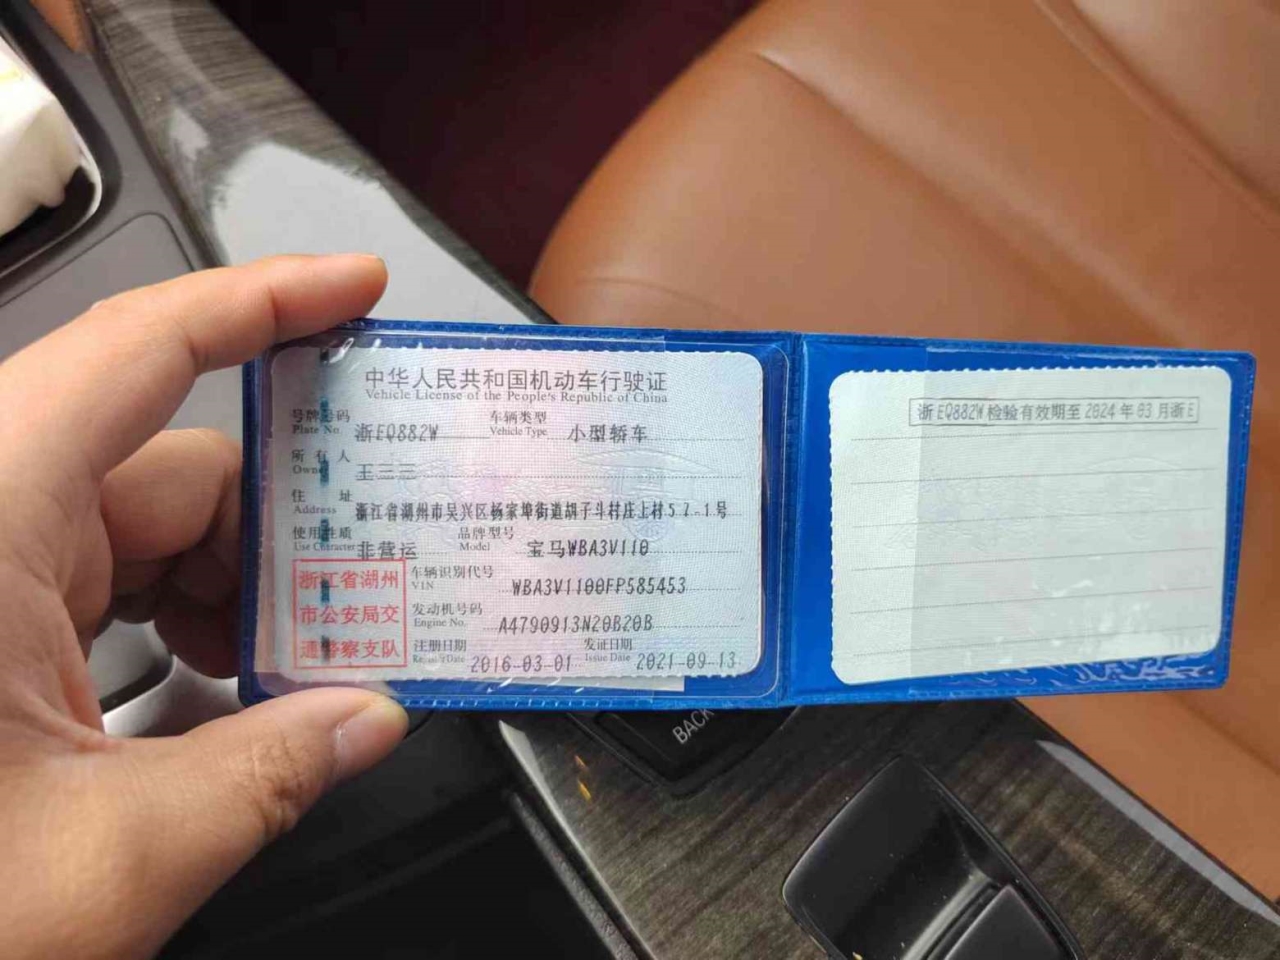 中华人民共和国机动车行驶证
Vehicle License of the People's Republic of China
号牌号码 浙EQ882W 车辆类型 小型轿车
Plate No. Vehicle Type
所有人 王三三
Owner
住址 浙江省湖州市吴兴区杨家埠街道胡子斗村庄上村57-1号
Address
使用性质 非营运 品牌型号 宝马WBA3V110
Use Character Model
浙江省湖州
市公安局交
通警察支队
车辆识别代号 WBA3V1100FP585453
VIN
发动机号码 A4790913N20B20B
Engine No.
注册日期 2016-03-01 发证日期 2021-09-13
Register Date Issue Date
浙EQ882W检验有效期至2024年03月浙E
BACK